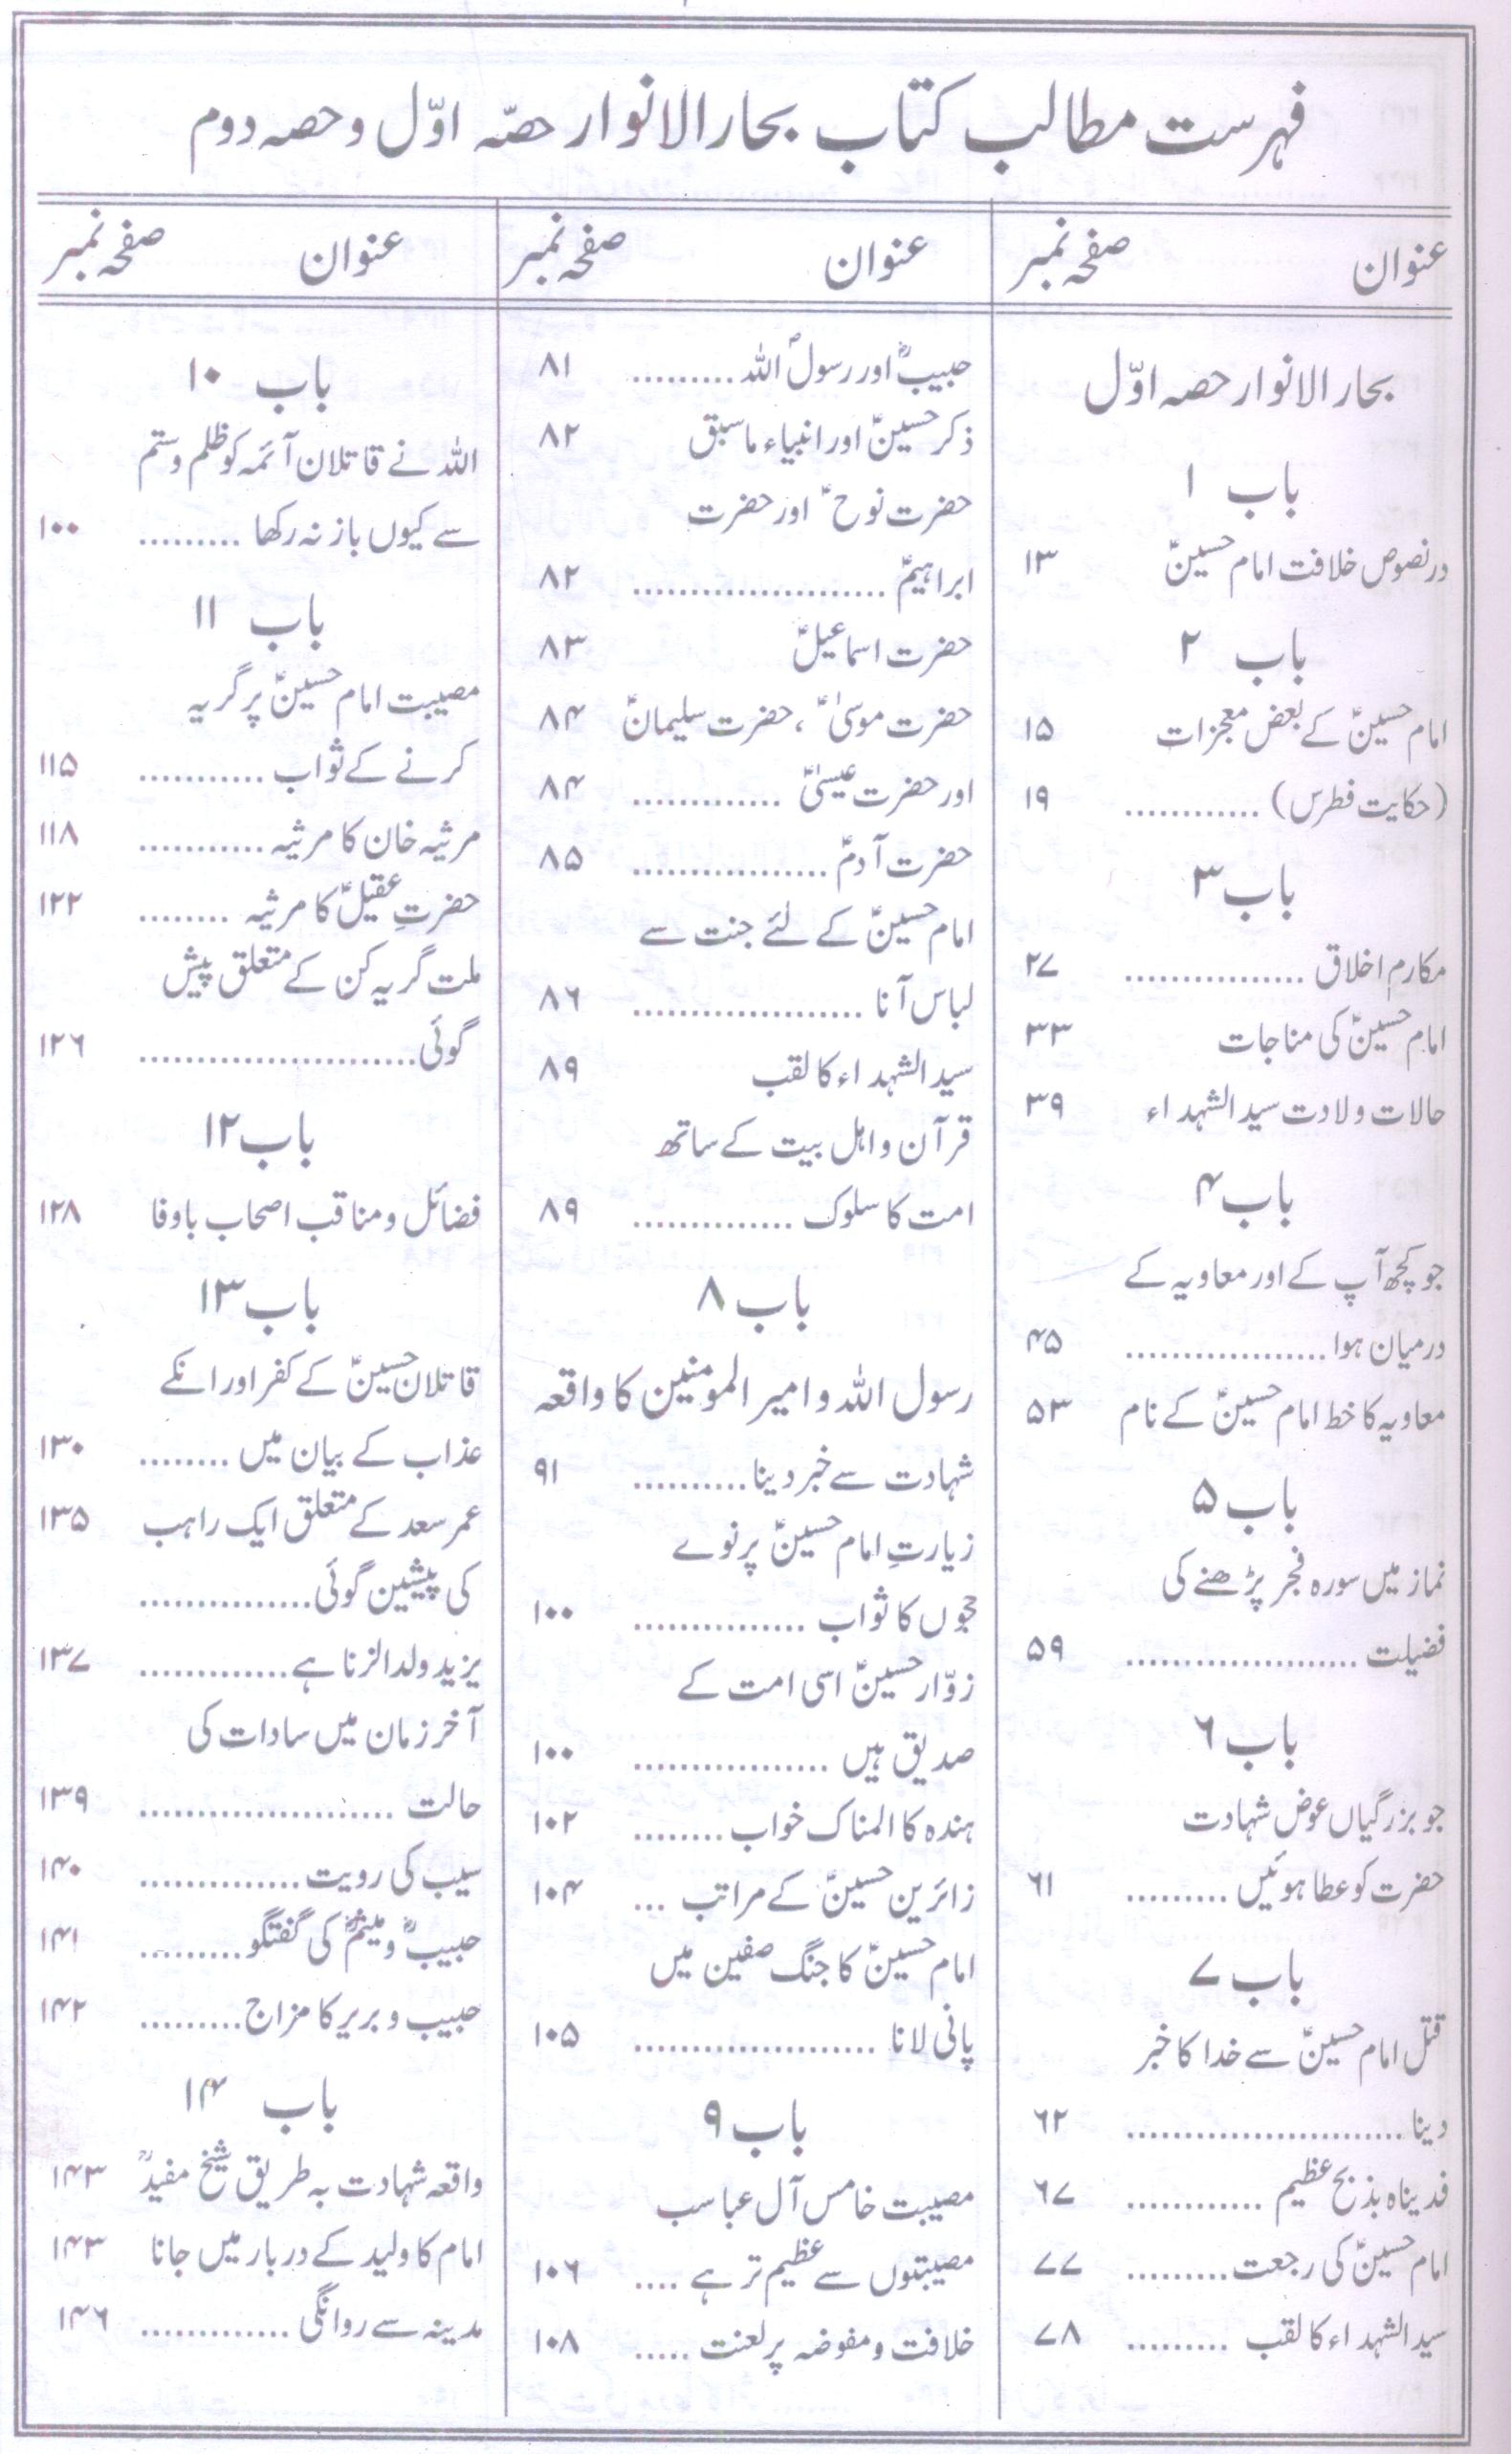 فہرست مطالب کتاب بحارالانوار حصّہ اوّل و حصہ دوم
عنوان صفحہ نمبر
بحارالانوار حصہ اوّل
باب ۱
در نصوص خلافت امام حسینؑ ۱۳
باب ۲
امام حسینؑ کے بعض معجزات ۱۵
(حکایت فطرس) ............ ۱۹
باب ۳
مکارم اخلاق ................ ۲۷
امام حسینؑ کی مناجات ۳۳
حالات ولادت سید الشہداء ۳۹
باب ۴
جو کچھ آپ کے اور معاویہ کے
درمیان ہوا .................. ۴۵
معاویہ کا خط امام حسینؑ کے نام ۵۳
باب ۵
نماز میں سورہ فجر پڑھنے کی
فضیلت ..................... ۵۹
باب ۶
جو بزرگیاں عوض شہادت
حضرت کو عطا ہوئیں ......... ۶۱
باب ۷
قتل امام حسینؑ سے خدا کا خبر
دینا ......................... ۶۲
فدیناہ بذبح عظیم ............ ۶۷
امام حسینؑ کی رجعت ......... ۷۷
سید الشہداء کا لقب ......... ۷۸
عنوان صفحہ نمبر
حبیبؓ اور رسولؐ اللہ ......... ۸۱
ذکر حسینؑ اور انبیاء ماسبق ۸۲
حضرت نوحؑ اور حضرت
ابراہیمؑ ...................... ۸۲
حضرت اسماعیلؑ ۸۳
حضرت موسیٰؑ ، حضرت سلیمانؑ ۸۴
اور حضرت عیسیٰؑ ............. ۸۴
حضرت آدمؑ ................. ۸۵
امام حسینؑ کے لئے جنت سے
لباس آنا .................... ۸۶
سید الشہداء کا لقب ۸۹
قرآن و اہل بیت کے ساتھ
امت کا سلوک .............. ۸۹
باب ۸
رسول اللہ و امیر المومنین کا واقعہ
شہادت سے خبر دینا .......... ۹۱
زیارتِ امام حسینؑ پر نوے
حجوں کا ثواب ............... ۱۰۰
زوّار حسینؑ اسی امت کے
صدیق ہیں ................. ۱۰۰
ہندہ کا المناک خواب ........ ۱۰۲
زائرین حسینؑ کے مراتب ... ۱۰۴
امام حسینؑ کا جنگ صفین میں
پانی لانا ..................... ۱۰۵
باب ۹
مصیبت خامس آل عبا سب
مصیبتوں سے عظیم تر ہے .... ۱۰۶
خلافت و مفوضہ پر لعنت ..... ۱۰۸
عنوان صفحہ نمبر
باب ۱۰
اللہ نے قاتلان آئمہ کو ظلم و ستم
سے کیوں باز نہ رکھا ......... ۱۰۰
باب ۱۱
مصیبت امام حسینؑ پر گریہ
کرنے کے ثواب ........... ۱۱۵
مرثیہ خان کا مرثیہ ........... ۱۱۸
حضرتِ عقیلؑ کا مرثیہ ........ ۱۲۲
ملت گریہ کن کے متعلق پیش
گوئی ........................ ۱۲۶
باب ۱۲
فضائل و مناقب اصحاب باوفا ۱۲۸
باب ۱۳
قاتلان حسینؑ کے کفر اور انکے
عذاب کے بیان میں ........ ۱۳۰
عمر سعد کے متعلق ایک راہب ۱۳۵
کی پیشین گوئی ...............
یزید ولد الزنا ہے ............. ۱۳۷
آخر زمان میں سادات کی
حالت ...................... ۱۳۹
سیب کی رویت .............. ۱۴۰
حبیبؓ و میثمؓ کی گفتگو ......... ۱۴۱
حبیب و بریر کا مزاح ......... ۱۴۲
باب ۱۴
واقعہ شہادت بہ طریق شیخ مفیدؒ ۱۴۳
امام کا ولید کے دربار میں جانا ۱۴۳
مدینہ سے روانگی ............. ۱۴۶